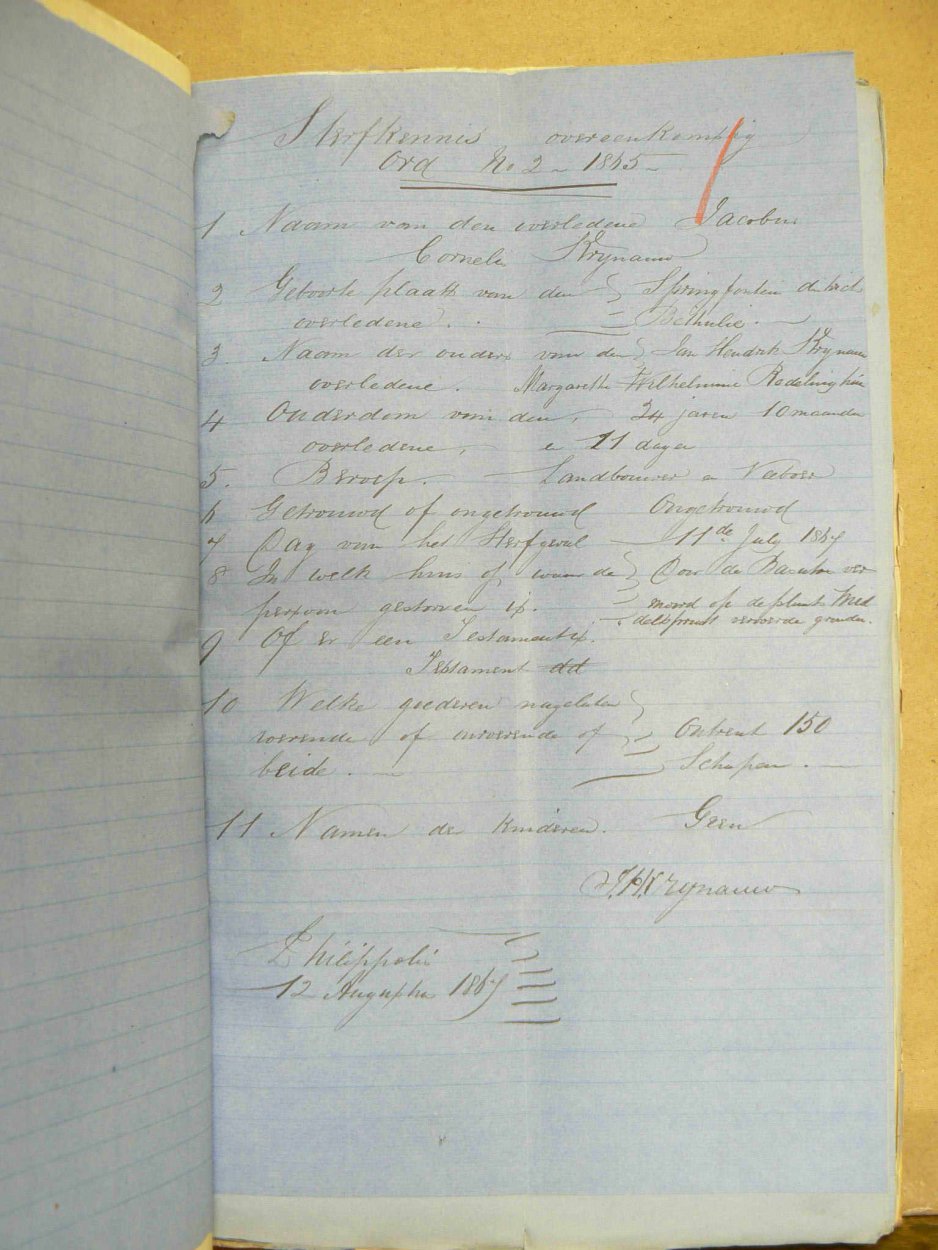 Sterfkennis overeenkomstig
Ord No 2 - 1865 -
1 Naam van den overledene Jacobus
Cornelis Krynauw
2 Geboorte plaats van den Springfontein
overledene. Bethulie. -
3 Naam der ouders van den Jan Hendrik Krynauw
overledene. Margaretha Wilhelmina
4 Ouderdom van den, 24 jaren 10 maanden
overledene, en 11 dagen
5. Beroep. - Landbouwer en Veeboer
6 Getrouwd of ongetrouwd Ongetrouwd
7 Dag van het Sterfgeval - 11de July 1867
8 In welk huis of waar de Door de Basutos ver
persoon gestorven is. moord op de plaats
9 Of er een Testament is. veroverde gronden.
Testament dd
10 Welke goederen nagelaten
roerende of onroerende of Omtrent 150
beide. - Schapen. -
11 Namen der kinderen. Geen
J.H. Krynauw
Philippolis
12 Augustus 1867